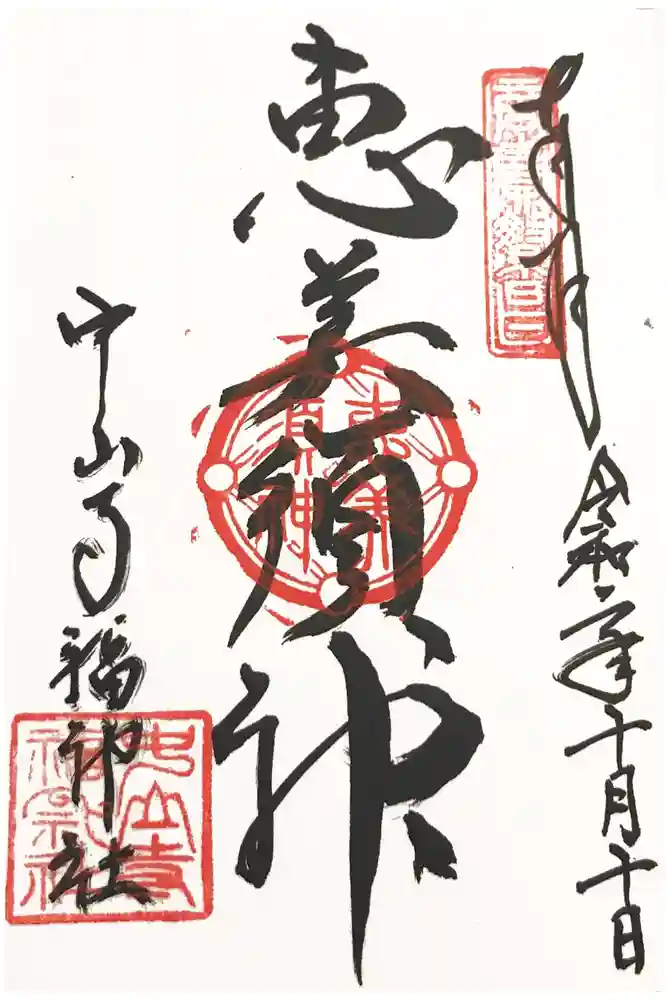 奉拝
令和二年十月十日
恵美須神
恵美
須神
中山寺福神社
中山寺
福神社